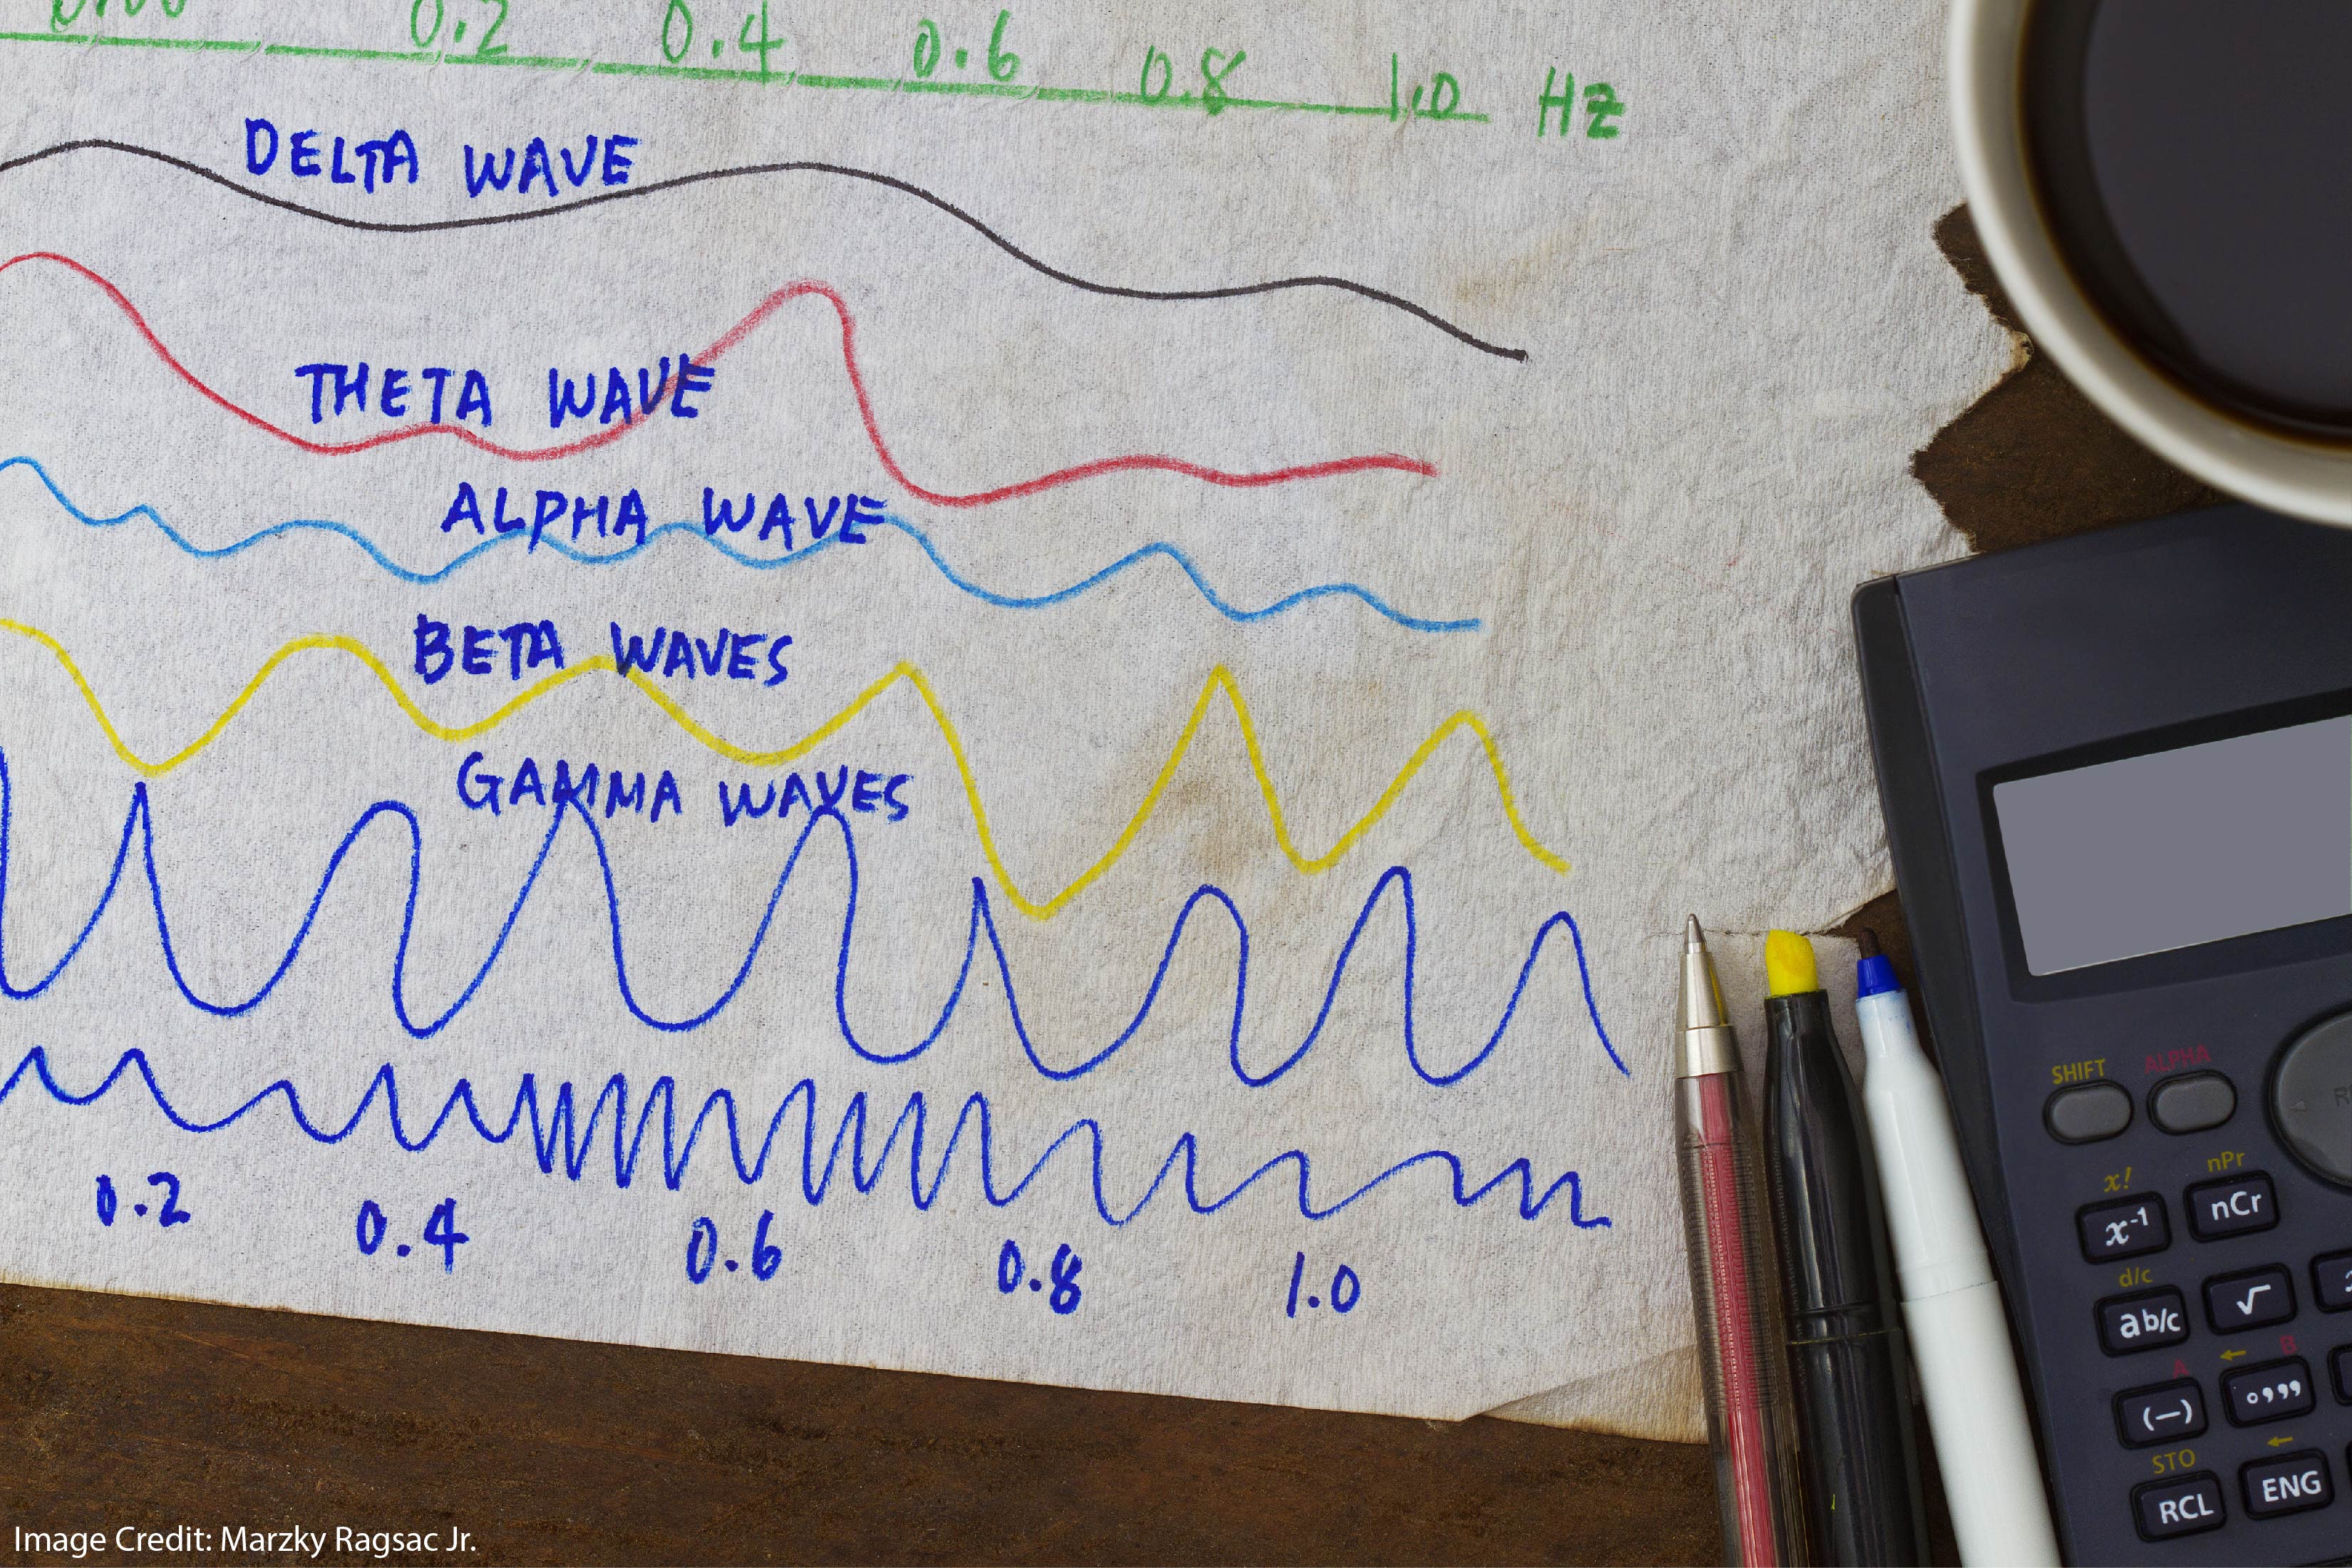 0.00 0.2 0.4 0.6 0.8 1.0 Hz
DELTA WAVE
THETA WAVE
ALPHA WAVE
BETA WAVES
GAMMA WAVES
0.2 0.4 0.6 0.8 1.0
SHIFT ALPHA
x! nPr
x-1 nCr
d/c
ab/c √
A ← B
(—) °,,,
STO ←
RCL ENG
Image Credit: Marzky Ragsac Jr.